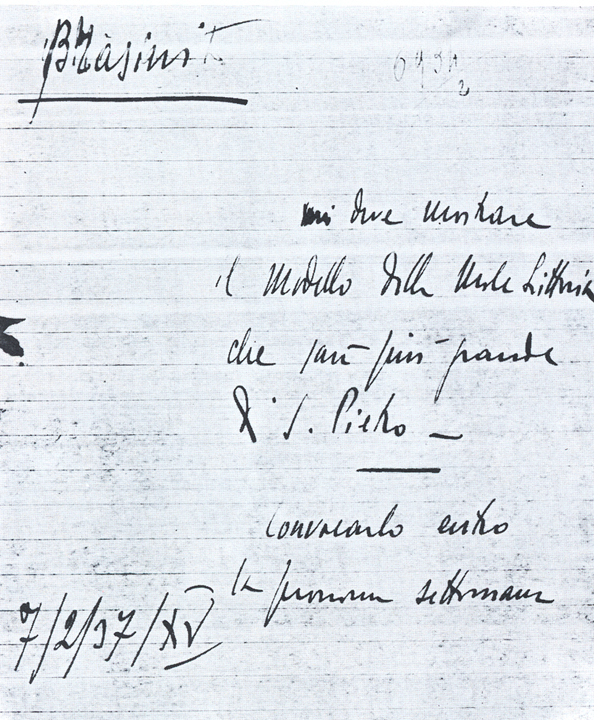 Brasini
mi deve mostrare
il modello della Mole Littoria
che sarà più grande
di S. Pietro —
convocarlo entro
la prossima settimana
7/2/37/XV